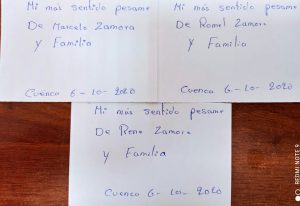 Mi más sentido pesame
De Marcelo Zamora
y Familia
Cuenca 6-10-2020
Mi más sentido pesame
De Romel Zamora
y Familia
Cuenca 6-10-2020
Mi más sentido pesame
De Rene Zamora
y Familia
Cuenca 6-10-2020
REDMI NOTE 9